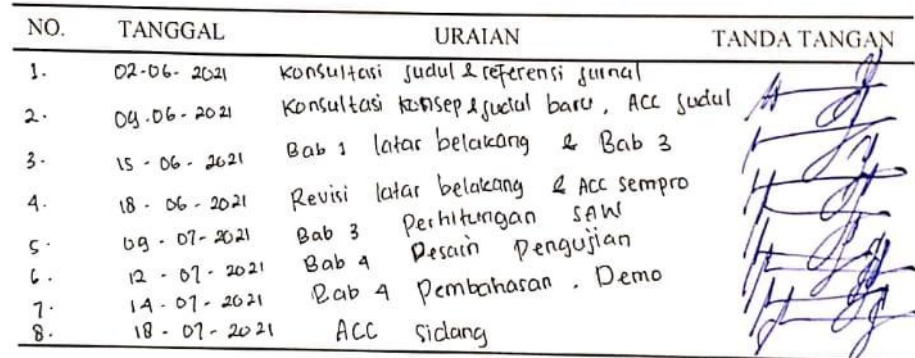 NO. TANGGAL URAIAN TANDA TANGAN
1. 02-06-2021 Konsultasi judul & referensi jurnal
2. 09-06-2021 Konsultasi konsep & judul baru, ACC judul
3. 15-06-2021 Bab 1 latar belakang & Bab 3
4. 18-06-2021 Revisi latar belakang & ACC sempro
5. 09-07-2021 Bab 3 Perhitungan SAW
6. 12-07-2021 Bab 4 Desain Pengujian
7. 14-07-2021 Bab 4 Pembahasan, Demo
8. 18-07-2021 ACC Sidang